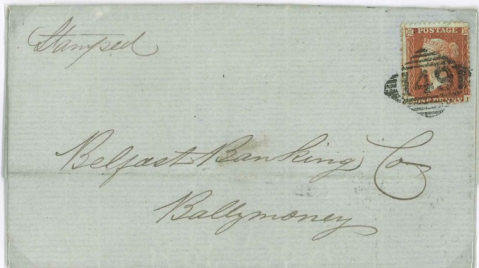 Stamped
POSTAGE
49
ONE PENNY
Belfast Banking Co
Ballymoney